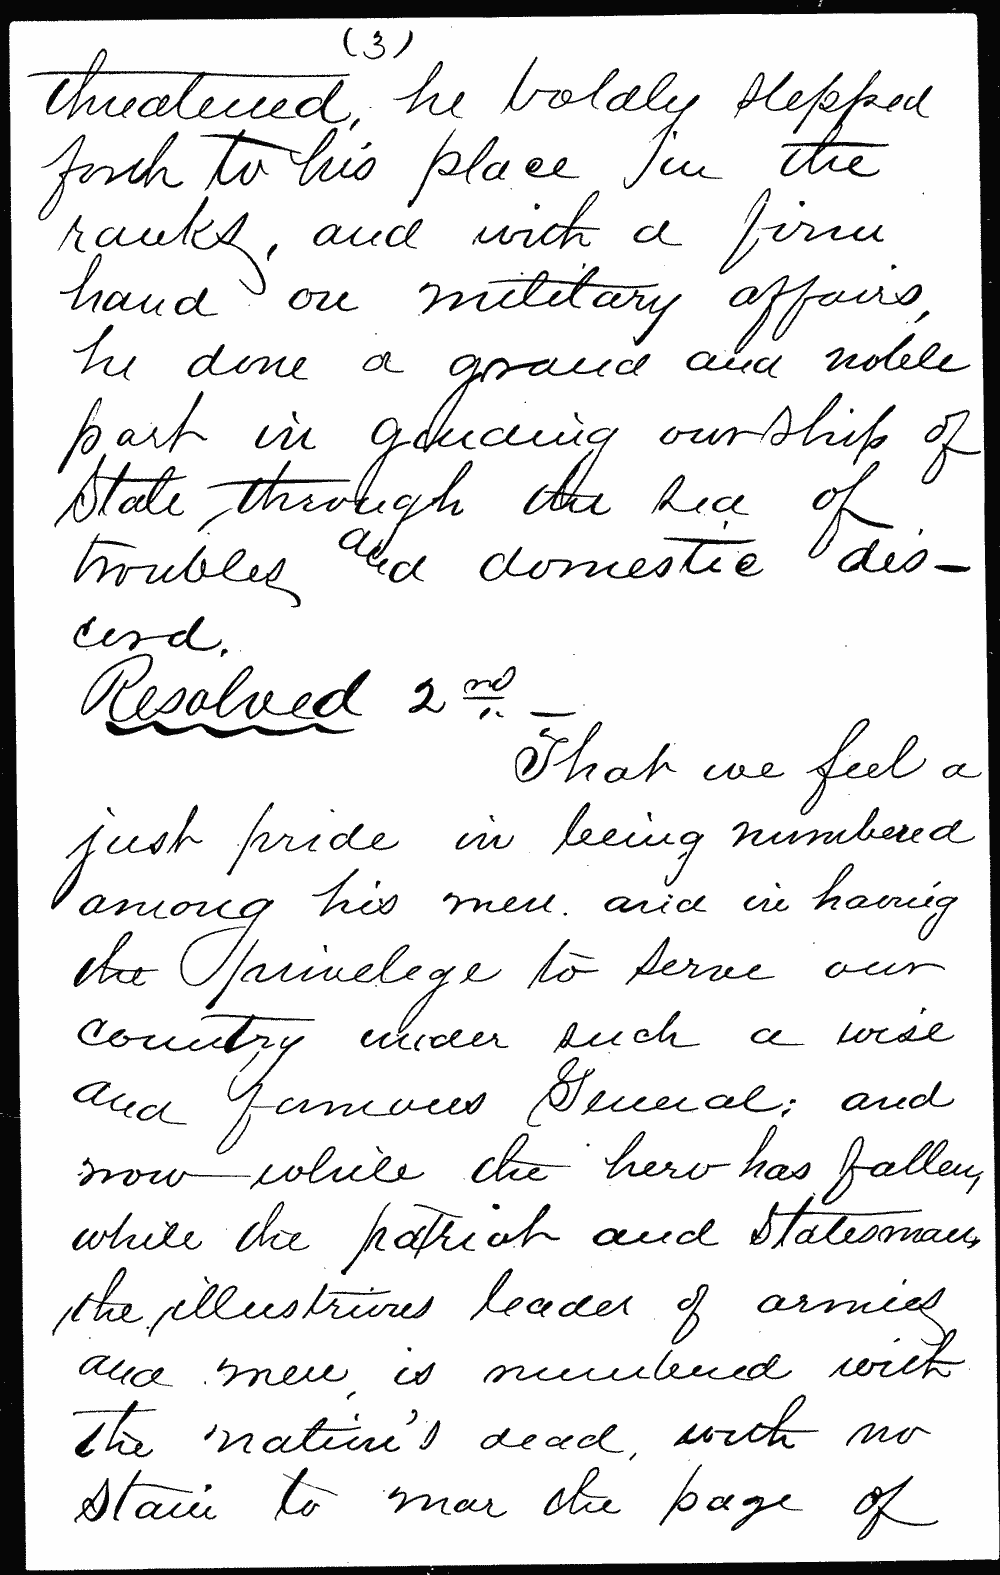 (3)
threatened, he boldly stepped
forth to his place in the
ranks, and with a firm
hand on military affairs,
he done a grand and noble
part in guiding our ship of
State, through the sea of
troubles and domestic dis-
cord.
Resolved 2nd. —
That we feel a
just pride in being numbered
among his men. and in having
the privelege to serve our
country under such a wise
and famous General; and
now while the hero has fallen,
while the patriot and Statesman,
the illustrious leader of armies
and men, is numbered with
the nation's dead, with no
stain to mar the page of